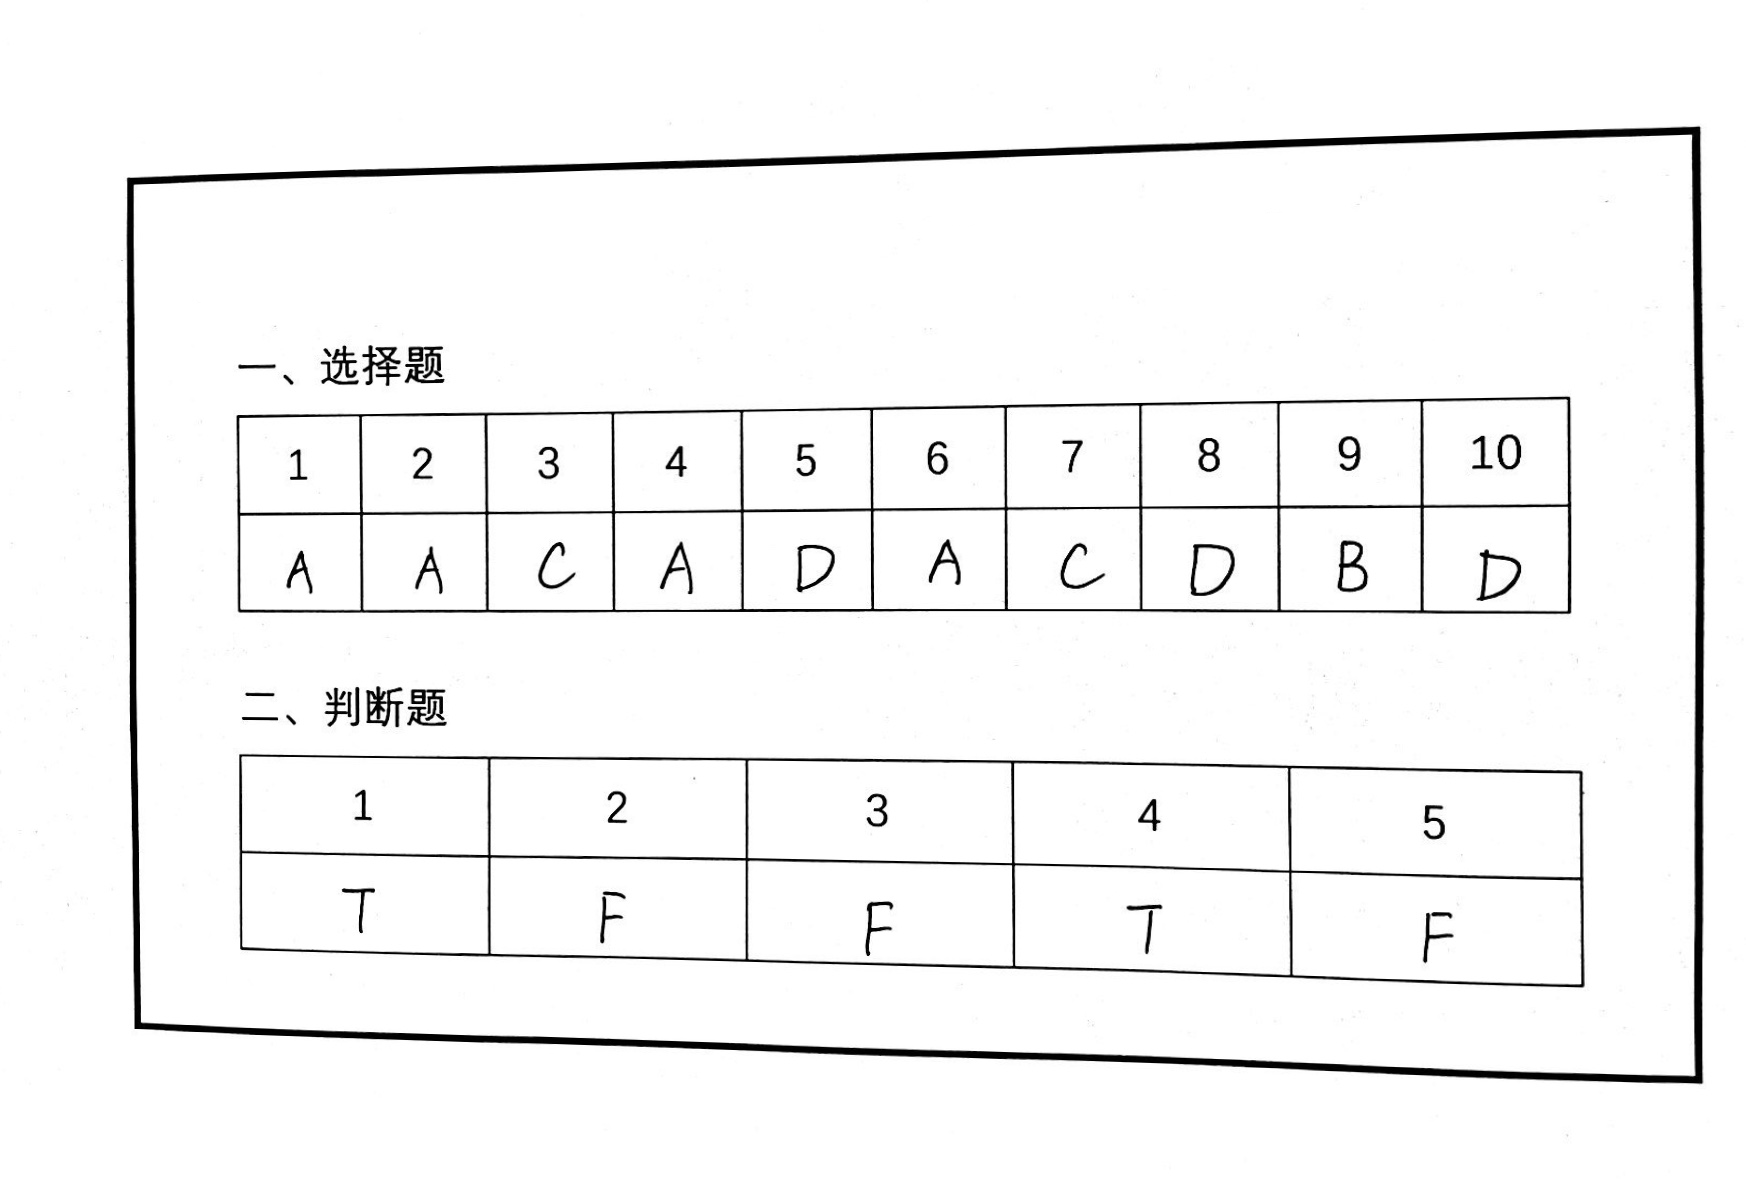 一、选择题
1 2 3 4 5 6 7 8 9 10
A A C A D A C D B D
二、判断题
1 2 3 4 5
T F F T F